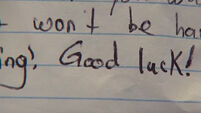 won't be ha
ing! Good luck!